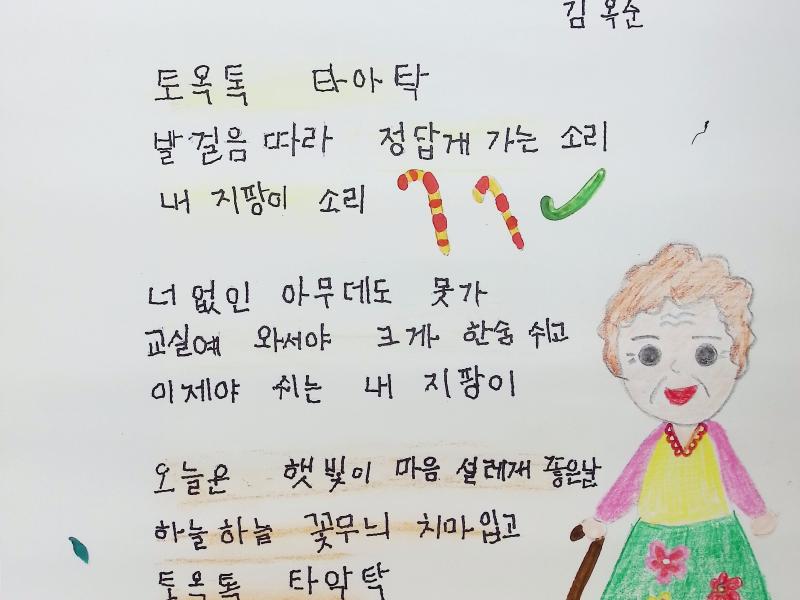 김옥순
토옥톡 타아탁
발걸음 따라 정답게 가는 소리
내 지팡이 소리
너 없인 아무데도 못가
교실에 와서야 크게 한숨 쉬고
이제야 쉬는 내 지팡이
오늘은 햇빛이 마음 설레게 좋은날
하늘하늘 꽃무늬 치마입고
토옥톡 타악탁